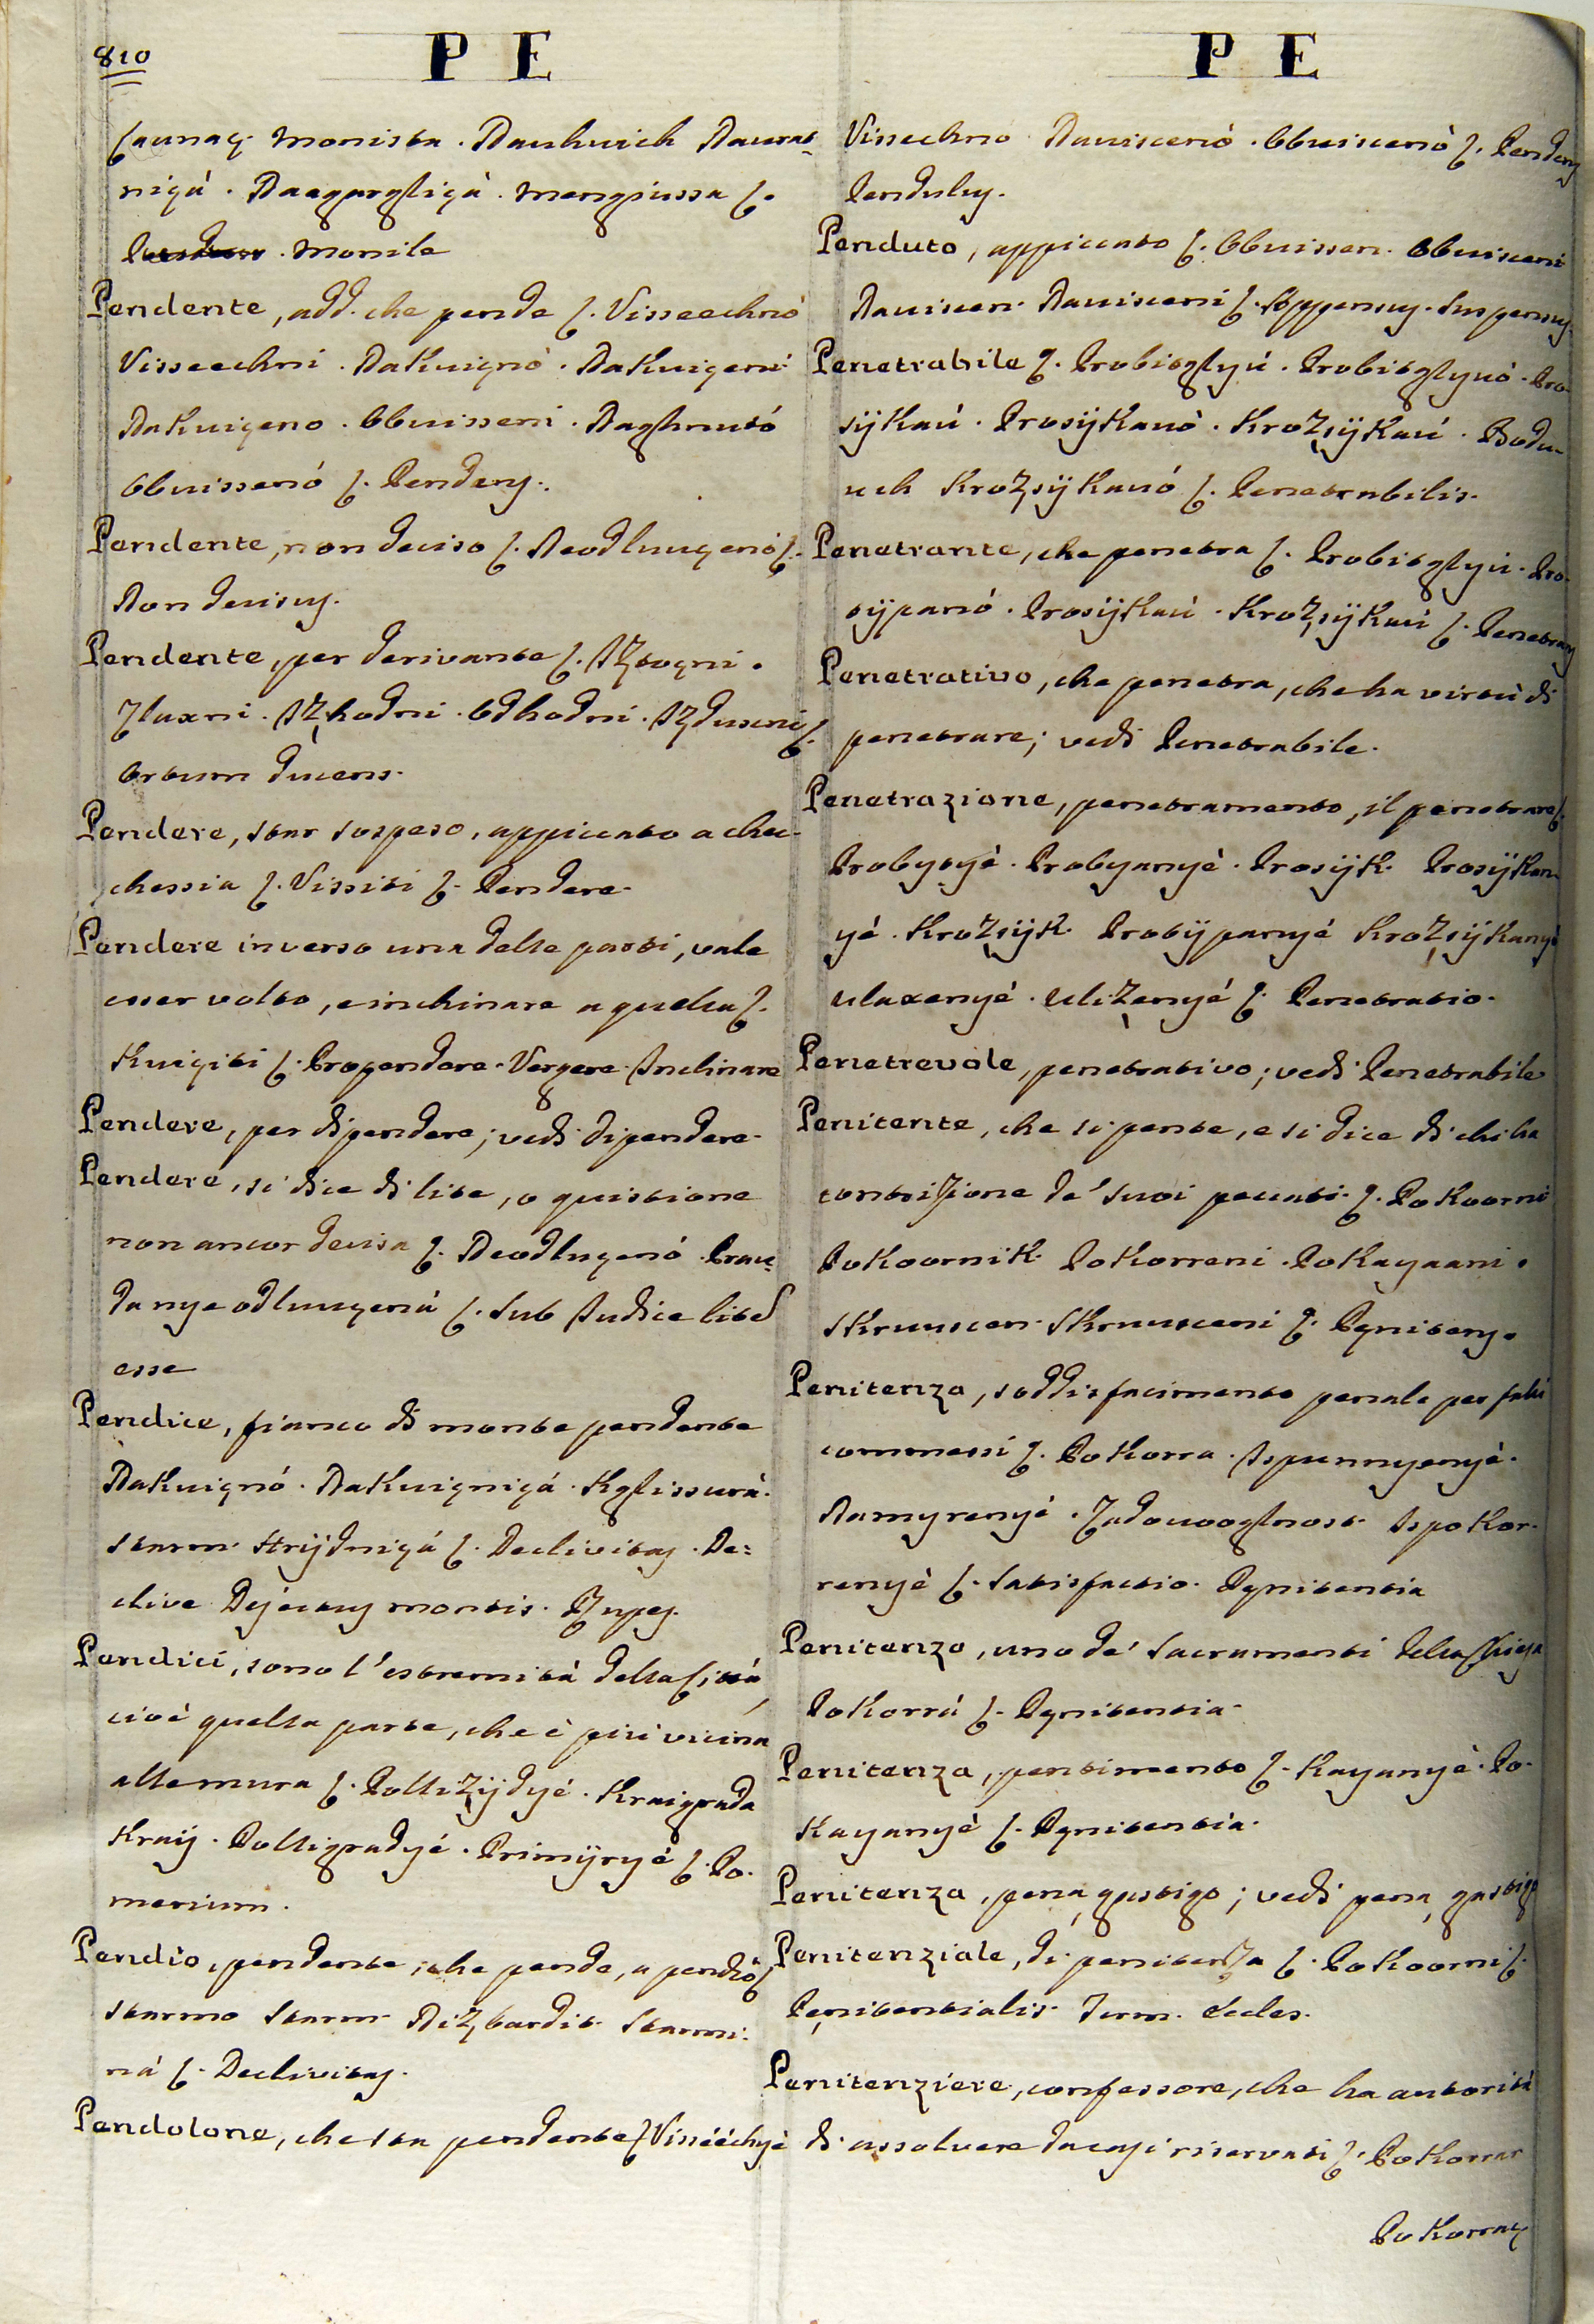 810
P E
launaç. Monista. Nauhvich Navrat-
niçà. Naegargliçà. Mengiussa L.
Monile
Pendente, add. che pende L. Visseechnò
Visseechni. Nakuiçnò. Nakuiçeni
Nakuiçeno. Obuisseni. Naghnutó
Obuissenó L. Pendens.
Pendente, non deciso L. Neodluuçenó L.
Non decisus.
Pendente, per derivante L. Iztoçni.
Zlaxni. Izhodni. Odhodni. Izduscni L.
Ortum ducens.
Pendere, star sospeso, appiccato a chec-
chessia L. Vissiti L. Pendere.
Pendere inverso una delle parti, vale
esser volto, e inchinare a quella L.
Kuiçiti L. Propendere. Vergere. Inclinare
Pendere, per dipendere; vedi dipendere.
Pendere, si dice di lite, o quistione
non ancor decisa L. Neodluçenó Prav-
da nye odluuçenà L. Sub Judice lites
esse
Pendice, fianco di monte pendente
Nakuiçnó. Nakuiçniçà. Kglissurà.
Starm. Strijdniçà L. Declivitas. De=
clive Dejectus montis. Rupes.
Pendici, sono l'estremità della Città,
cioè quella parte, che è più vicina
alle mura L. Polliżijdyé. Kraigrada
Kraij. Polligradyé. Primijryé L. Po-
merium.
Pendìo, pendente, che pende, a pendiò L
Starmo Starm. Nizbardit. Starmi-
nà L. Declivitas.
Pendolone, che sta pendente L Visséechyè
P E
Vissechno Naviscenò. Obuiscenò L. Pendens
Pendulus.
Penduto, appiccato L. Obuissen. Obuisceni
Naviscen. Navisceni L. Appensus. Suspensus.
Penetrabile L. Probitglyu. Probitglyuò. Pro-
sijkaú. Prosijkauò. Krozsijkaú. Bodu-
uch Krozsijkauó L. Penetrabilis.
Penetrante, che penetra L. Probitglyú. Pro-
sijpanó. Prosijkaú. Krozsijkaú L. Penetrans
Penetrativo, che penetra, che ha virtù di
penetrare; vedi Penetrabile.
Penetrazione, penetramento, il penetrare L.
Probytyè. Probyanyè. Prosijk. Prosijkan-
yé. Krozsijk. Prosijpanyé Krozsijkanyé
Ulaxenyé. Uliżenyé L. Penetratio.
Penetrevole, penetrativo; vedi Penetrabile
Penitente, che si pente, e si dice di chi ha
contrizione de' suoi peccati. L. Pokoorni
Pokoornik. Pokorreni. Pokayaani.
Skruuscen. Skruusceni L. Pęnitens.
Penitenza, soddisfacimento penale per falli
commessi L. Pokorra. Ispunnyenyè.
Namyrenyé. Zadovooglnost. Ispokor-
renyè L. Satisfactio. Pęnitentia
Penitenza, uno de' Sacramenti della Chiesa
Pokorrà L. Pęnitentia.
Penitenza, pentimento L. Kayanyè. Po-
kayanyè L. Pęnitentia.
Penitenza, pena, gastigo; vedi pena, gastigo
Penitenziale, di penitenza L. Pokoorni L.
Pęnitentialis. Term. Eccles.
Penitenziere, confessore, che ha autorità
di assolvere da casi riservati L. Pokorrar
Pokorraç